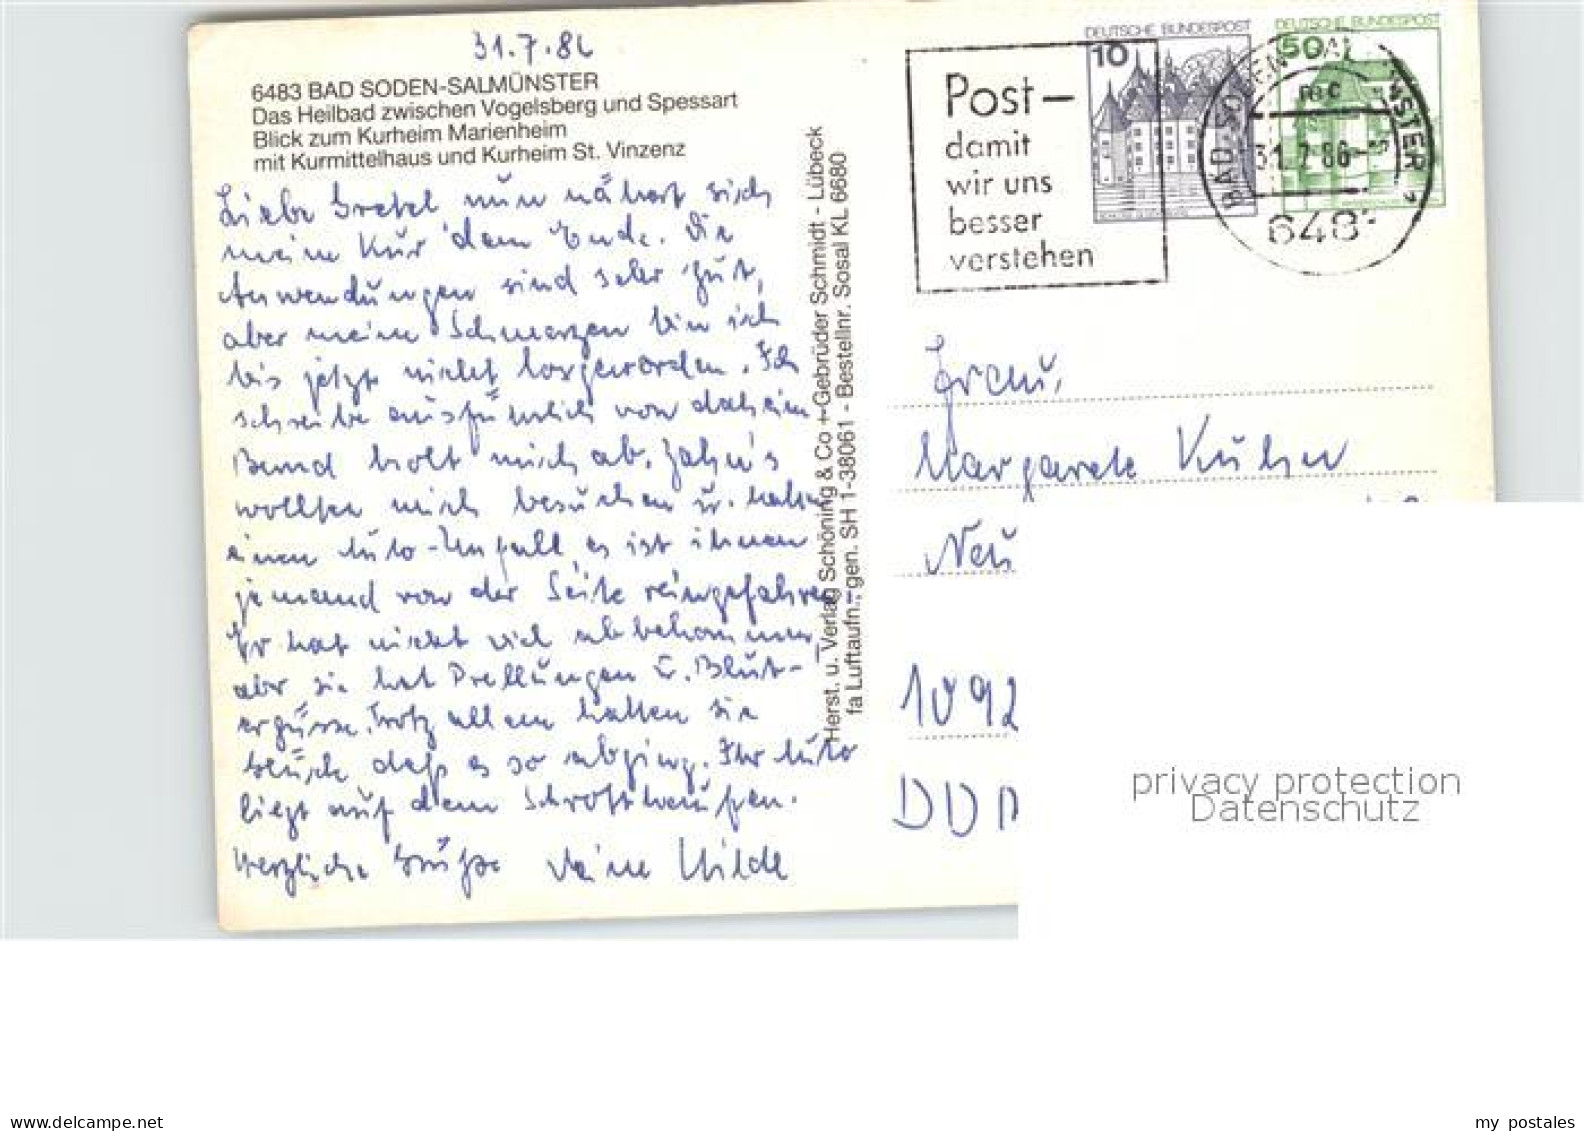 31.7.86
6483 BAD SODEN-SALMÜNSTER
Das Heilbad zwischen Vogelsberg und Spessart
Blick zum Kurheim Marienheim
mit Kurmittelhaus und Kurheim St. Vinzenz
Liebe Gretel nun nähert sich
meine Kur dem Ende. Die
Anwendungen sind sehr gut,
aber meine Schmerzen bin ich
bis jetzt nicht losgeworden. Ich
schreibe ausführlich von daheim
Bernd holt mich ab. Jahn's
wollten mich besuchen u. hatten
einen Auto-Unfall es ist ihnen
jemand von der Seite reingefahren
Er hat nicht viel abbekommen,
aber sie hat Prellungen u. Blut-
ergüsse. Trotz allem hatten sie
Glück daß es so abging. Ihr Auto
liegt auf dem Schrotthaufen.
Herzliche Grüße Deine Hilde
Herst. u. Verlag Schöning & Co + Gebrüder Schmidt - Lübeck
fa Luftaufn.: gen. SH 1-38061 - Bestellnr. Sosal KL 6680
Post-
damit
wir uns
besser
verstehen
DEUTSCHE BUNDESPOST
10
DEUTSCHE BUNDESPOST
50
31.7.86
648
Frau,
Margarete Kühn
Neu
1092
DDR
privacy protection
Datenschutz
www.delcampe.net
my postales